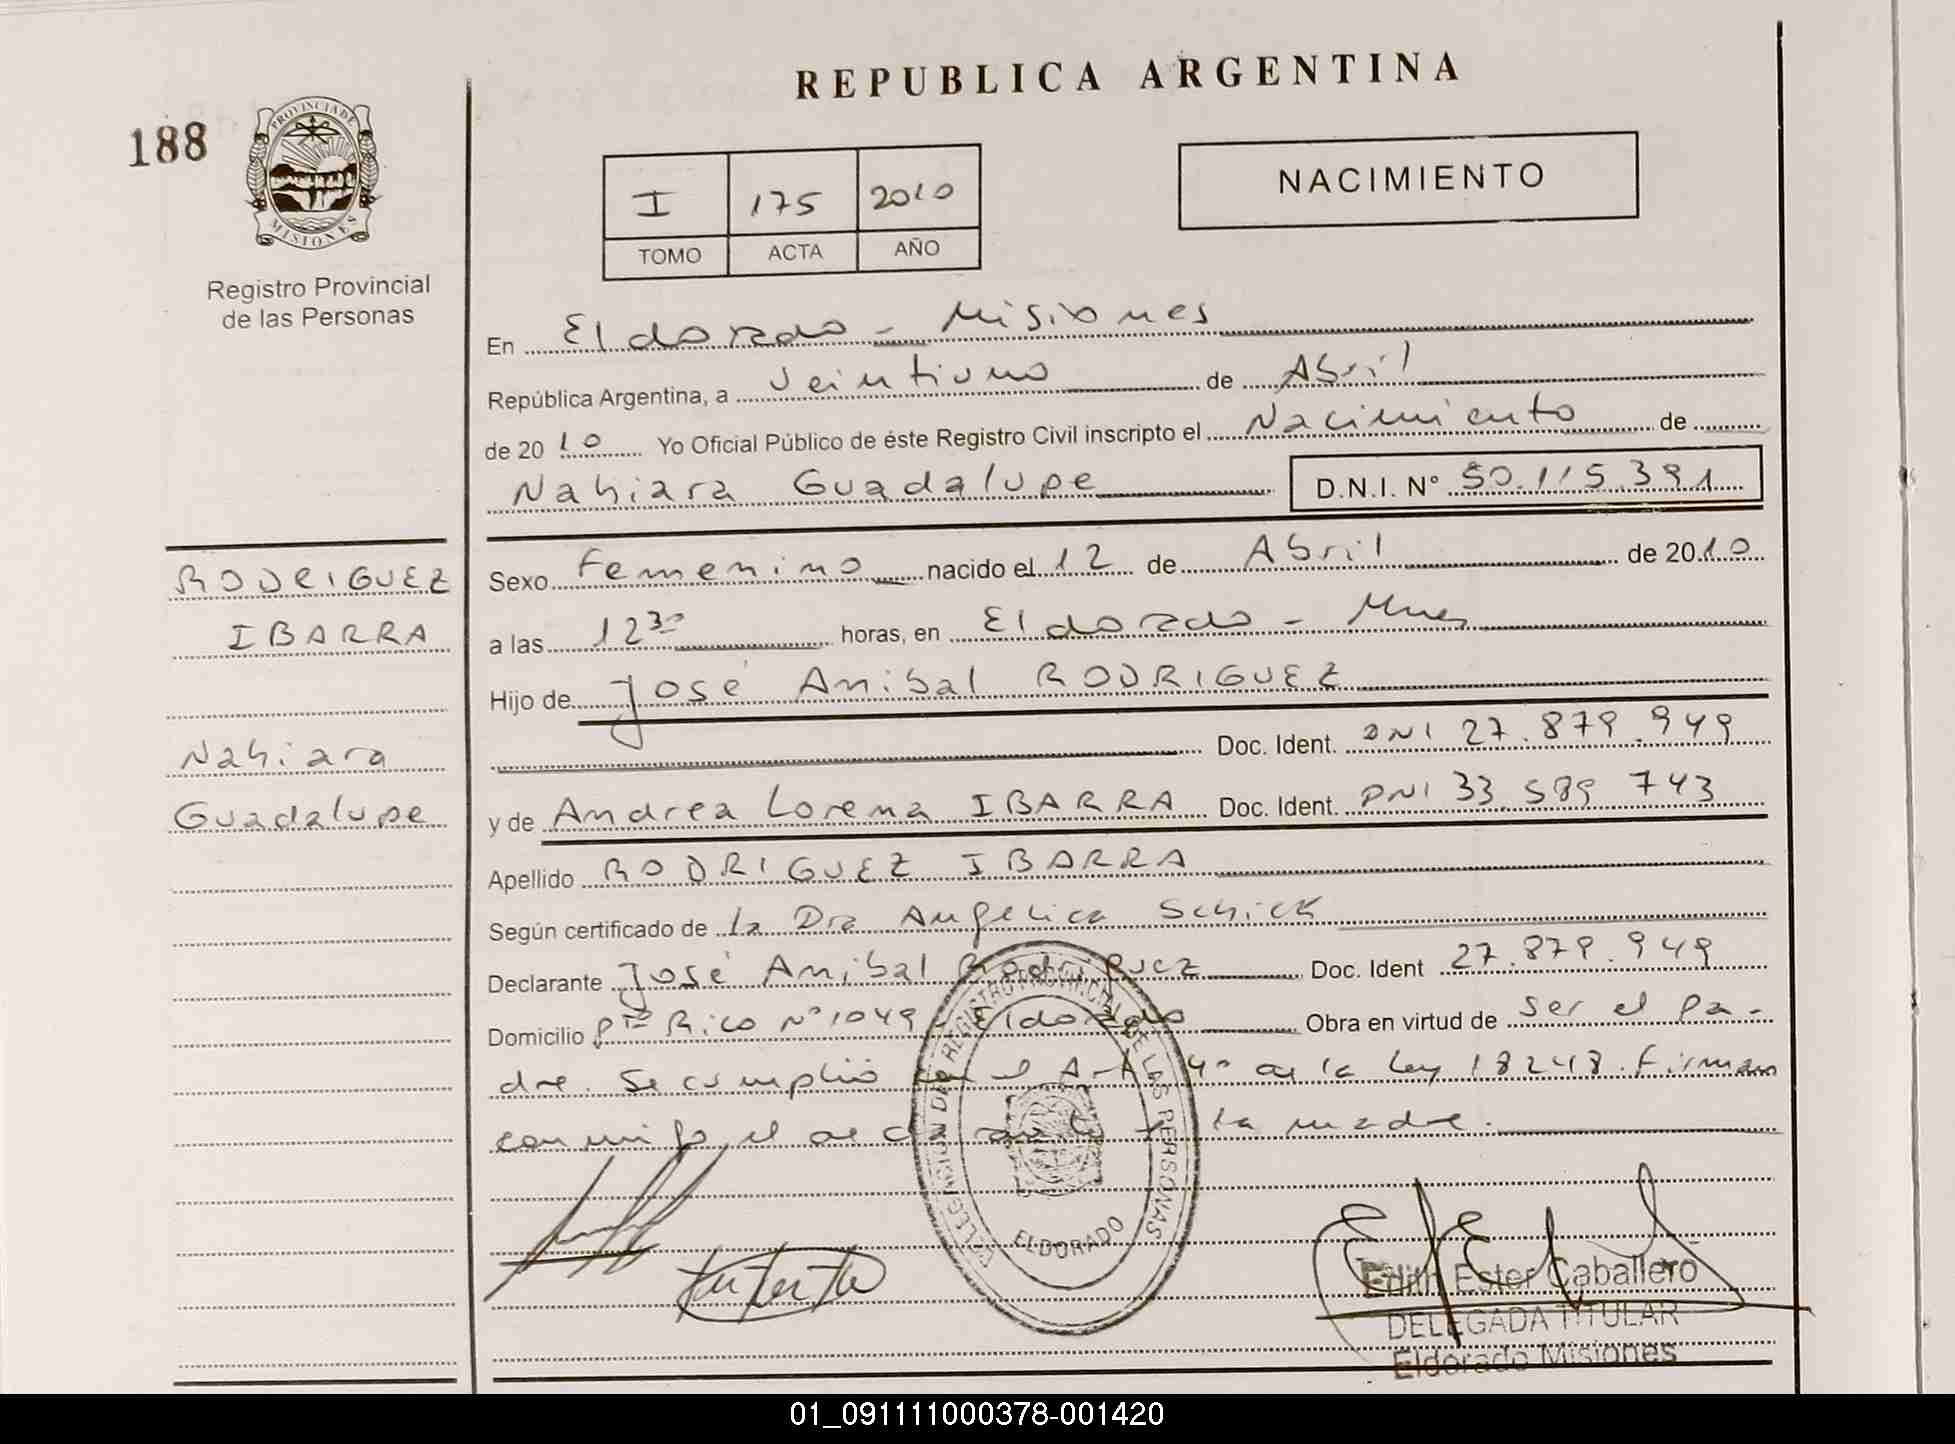 REPUBLICA ARGENTINA
188
PROVINCIA DE
MISIONES
Registro Provincial
de las Personas
I 175 2010
TOMO ACTA AÑO
NACIMIENTO
En Eldorado - Misiones
República Argentina, a veintiuno de Abril
de 2010 Yo Oficial Público de éste Registro Civil inscripto el Nacimiento de
Nahiara Guadalupe D.N.I. N° 50.115.391
RODRIGUEZ
IBARRA
Nahiara
Guadalupe
Sexo Femenino nacido el 12 de Abril de 2010
a las 12 30 horas, en Eldorado - Mnes
Hijo de José Anibal RODRIGUEZ
Doc. Ident. DNI 27.879.949
y de Andrea Lorena IBARRA Doc. Ident. DNI 33.589.743
Apellido RODRIGUEZ IBARRA
Según certificado de la Dra Angelica Schick
Declarante José Anibal Rodriguez Doc. Ident 27.879.949
Domicilio Pto Rico N° 1049 - Eldorado Obra en virtud de ser el pa-
dre. Se cumplió con el Art 4° de la Ley 18248. Firman
conmigo, el declarante y la madre.
DELEGACION DEL REGISTRO PROVINCIAL DE LAS PERSONAS
ELDORADO
Edith Ester Caballero
DELEGADA TITULAR
Eldorado Misiones
01_091111000378-001420